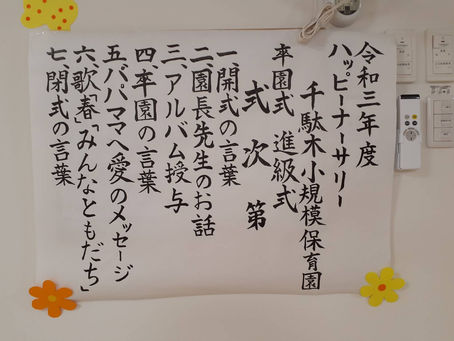 令和三年度
ハッピーナーサリー
千駄木小規模保育園
卒園式 進級式
式次第
一、開式の言葉
二、園長先生のお話
三、アルバム授与
四、卒園の言葉
五、パパママへ愛のメッセージ
六、歌「春」「みんなともだち」
七、閉式の言葉